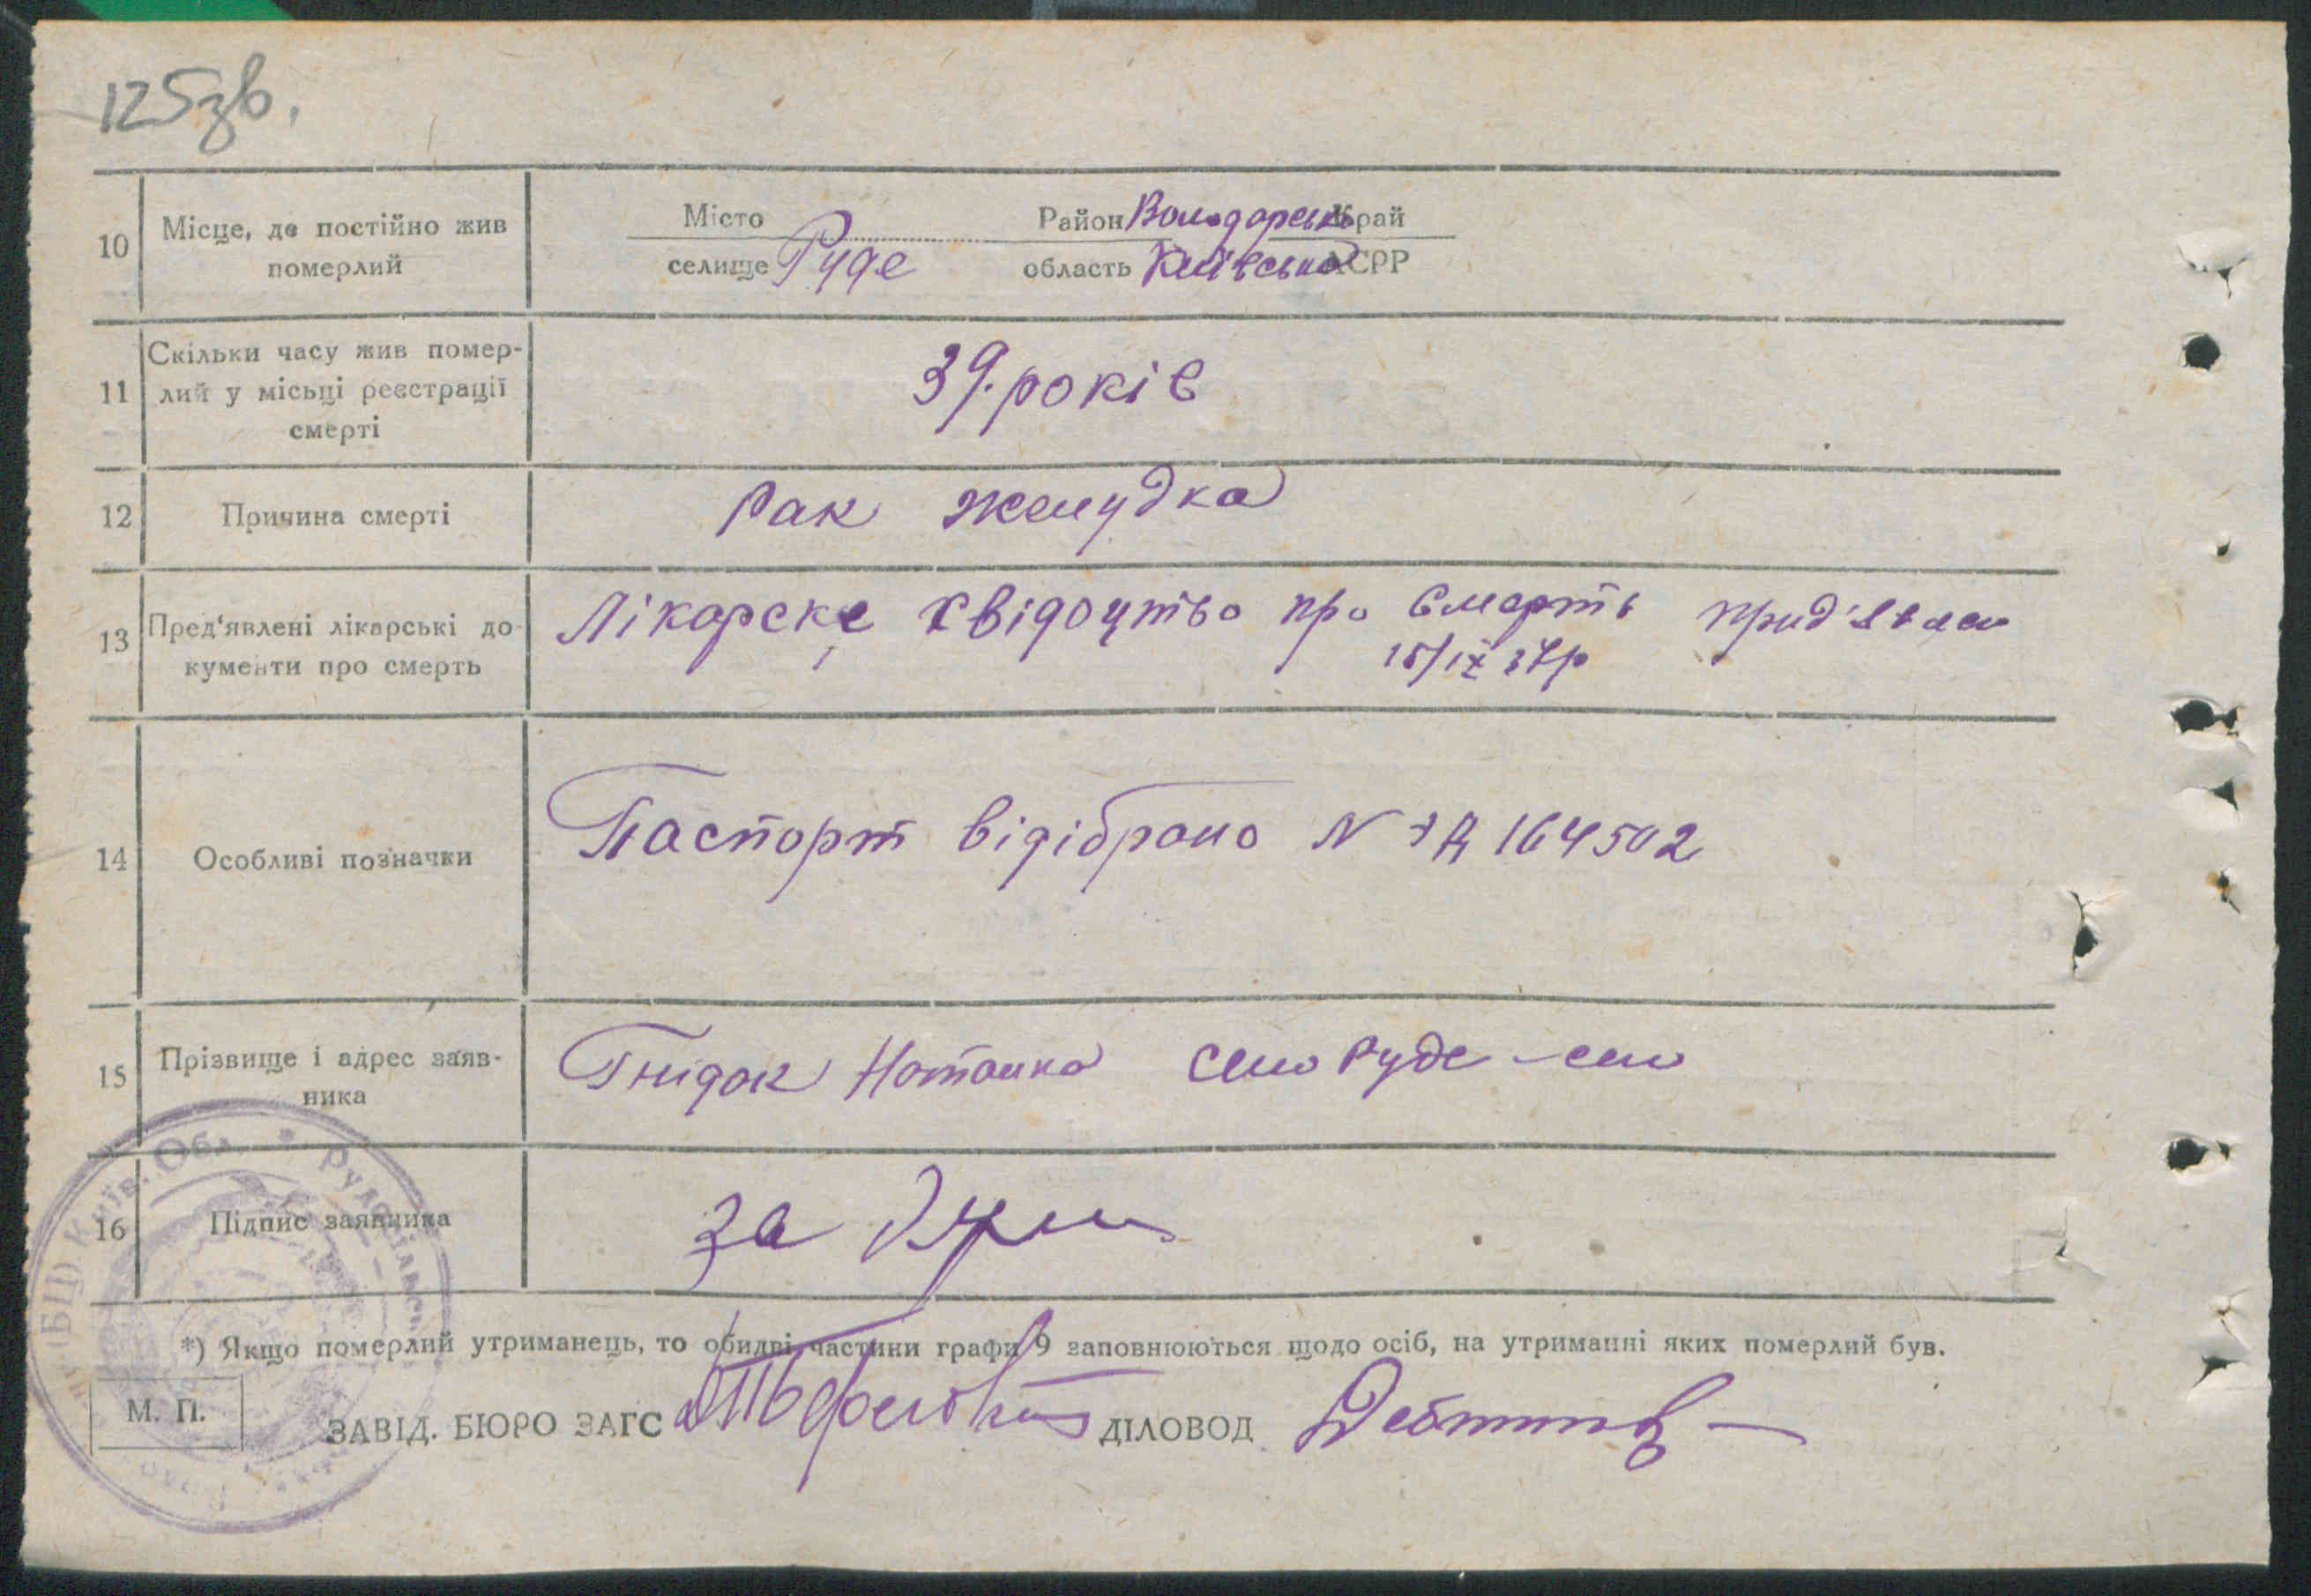 125зв.
10
Місце, де постійно жив
померлий
Місто
селище Руде
Район Володарськ Край
область Київська АСРР
11
Скільки часу жив помер-
лий у місьці реєстрації
смерті
39. років
12
Причина смерті
Рак желудка
13
Пред'явлені лікарські до-
кументи про смерть
Лікарске свідоцтво про смерть
15/IX 37р
14
Особливі позначки
Паспорт відібрано N 164502
15
Прізвище і адрес заяв-
ника
Гнидок Наталка село Руде-село
16
Підпис заявника
за
*) Якщо померлий утриманець, то обидві частини графи 9 заповнюються щодо осіб, на утриманні яких померлий був.
М. П.
ЗАВІД. БЮРО ЗАГС
ДІЛОВОД